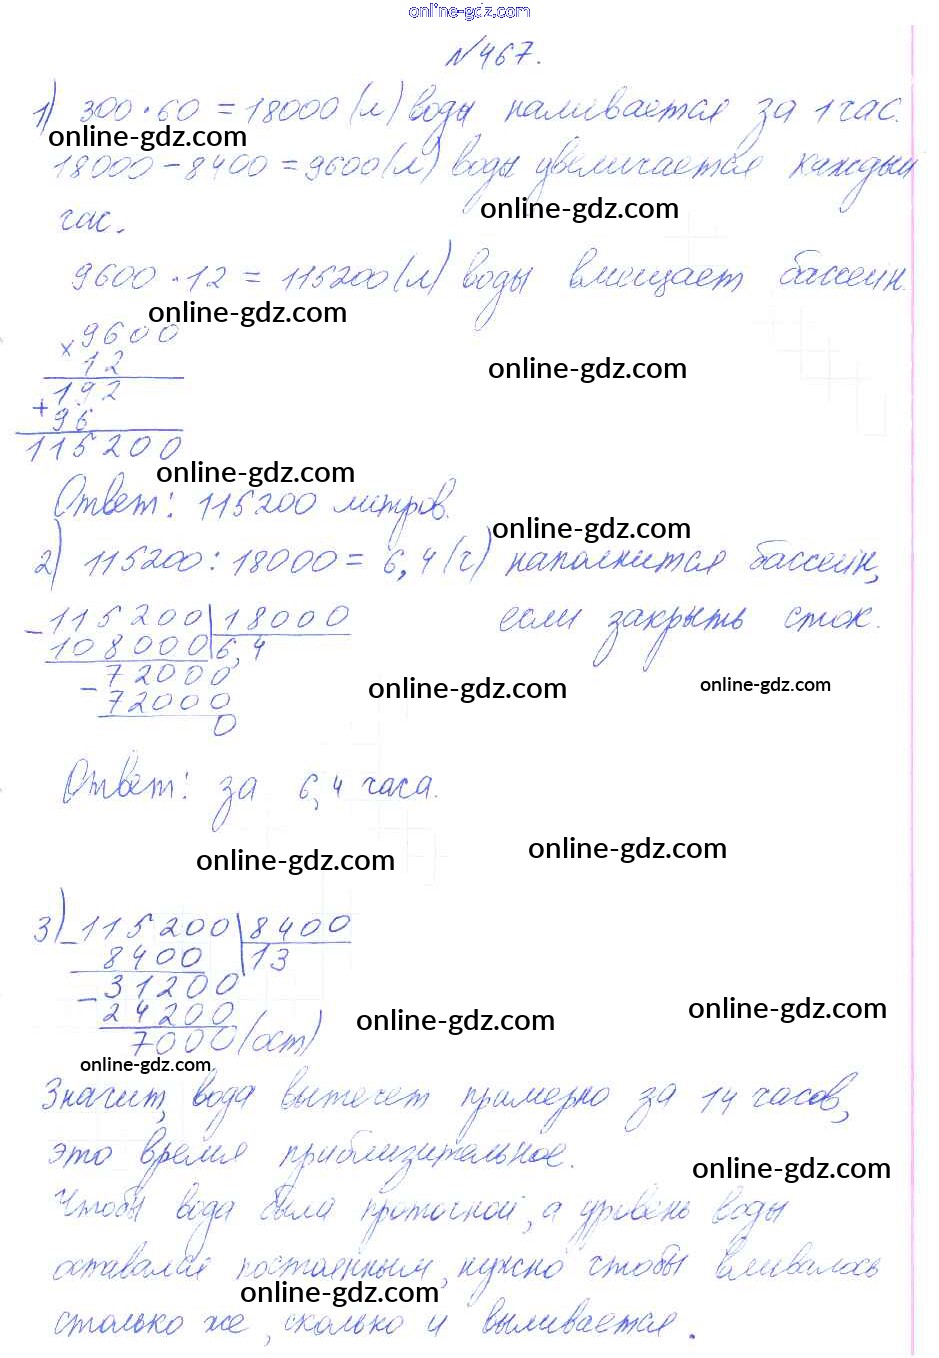 online-gdz.com
№467.
1) 300·60 = 18000 (л) воды наливается за 1 час.
online-gdz.com
18000 - 8400 = 9600 (л) воды увеличается каждый
online-gdz.com
час.
9600·12 = 115200 (л) воды вмещает бассейн.
online-gdz.com
× 9600
12
online-gdz.com
192
+ 96
115200
online-gdz.com
Ответ: 115200 литров.
online-gdz.com
2) 115200 : 18000 = 6,4 (ч) наполнится бассейн,
если закрыть сток.
- 115200 | 18000
108000 | 6,4
- 72000
72000
online-gdz.com
online-gdz.com
0
Ответ: за 6,4 часа.
online-gdz.com
online-gdz.com
3) - 115200 | 8400
8400 | 13
- 31200
24200
online-gdz.com
online-gdz.com
7000 (ост)
online-gdz.com
Значит, вода вытечет примерно за 14 часов,
это время приблизительное.
online-gdz.com
Чтобы вода была проточной, а уровень воды
оставался постоянным, нужно чтобы вливалось
online-gdz.com
столько же, сколько и выливается.